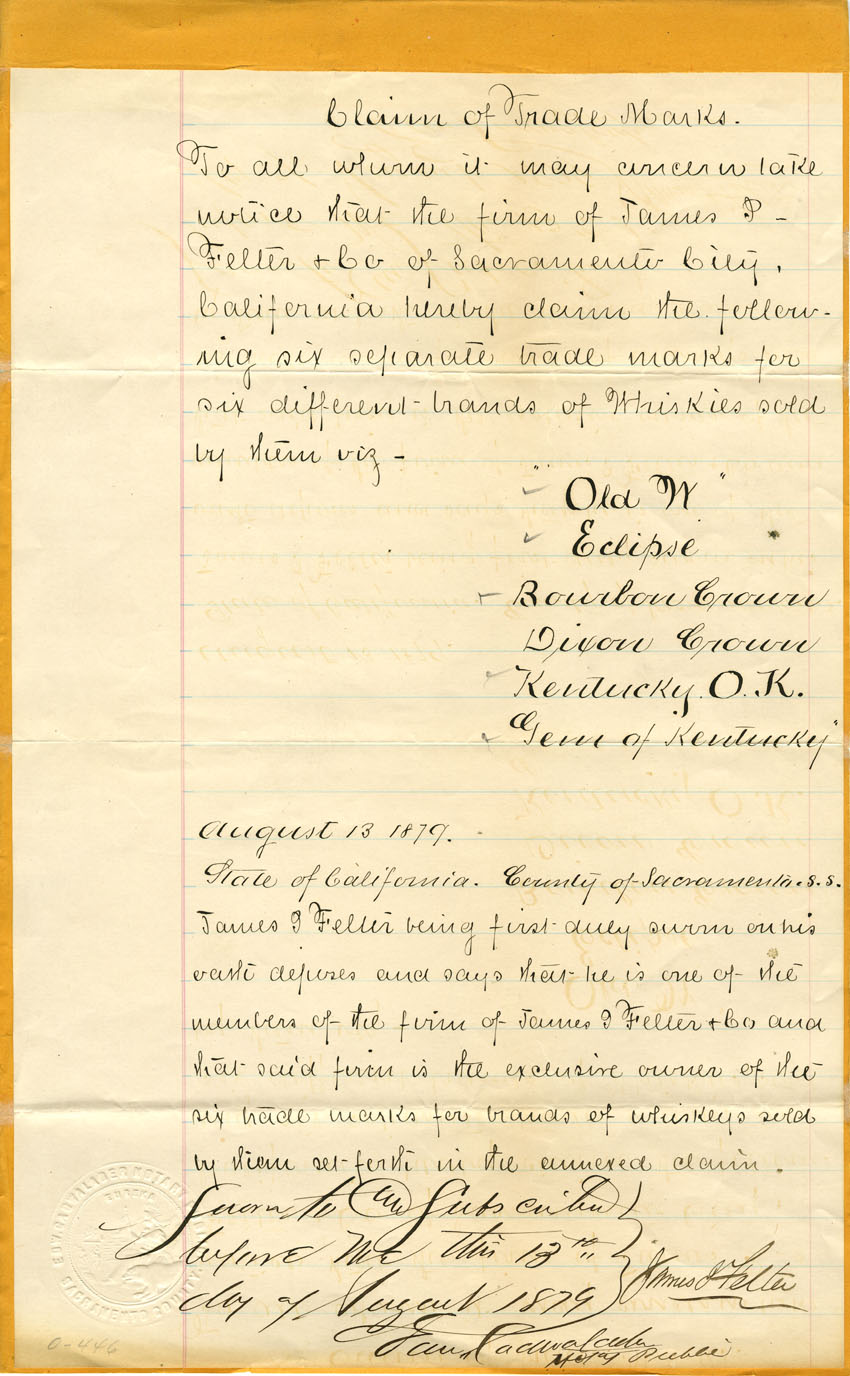 Claim of Trade Marks.
To all whom it may concern take
notice that the firm of James I -
Felter & Co of Sacramento City,
California hereby claim the follow-
ing six separate trade marks for
six different brands of Whiskies sold
by them viz -
" Old W "
Eclipse
Bourbon Crown
Dixon Crown
Kentucky. O. K.
Gem of Kentucky"
August 13 1879.
State of California. County of Sacramento. s.s.
James I Felter being first duly sworn on his
oath deposes and says that he is one of the
members of the firm of James I Felter & Co and
that said firm is the exclusive owner of the
six trade marks for brands of whiskeys sold
by them set forth in the annexed claim.
Sworn to and Subscribed
before me this 13th
day of August 1879
James I Felter
Cadwalader
Notary Public
EUREKA
SACRAMENTO COUNTY
0-446